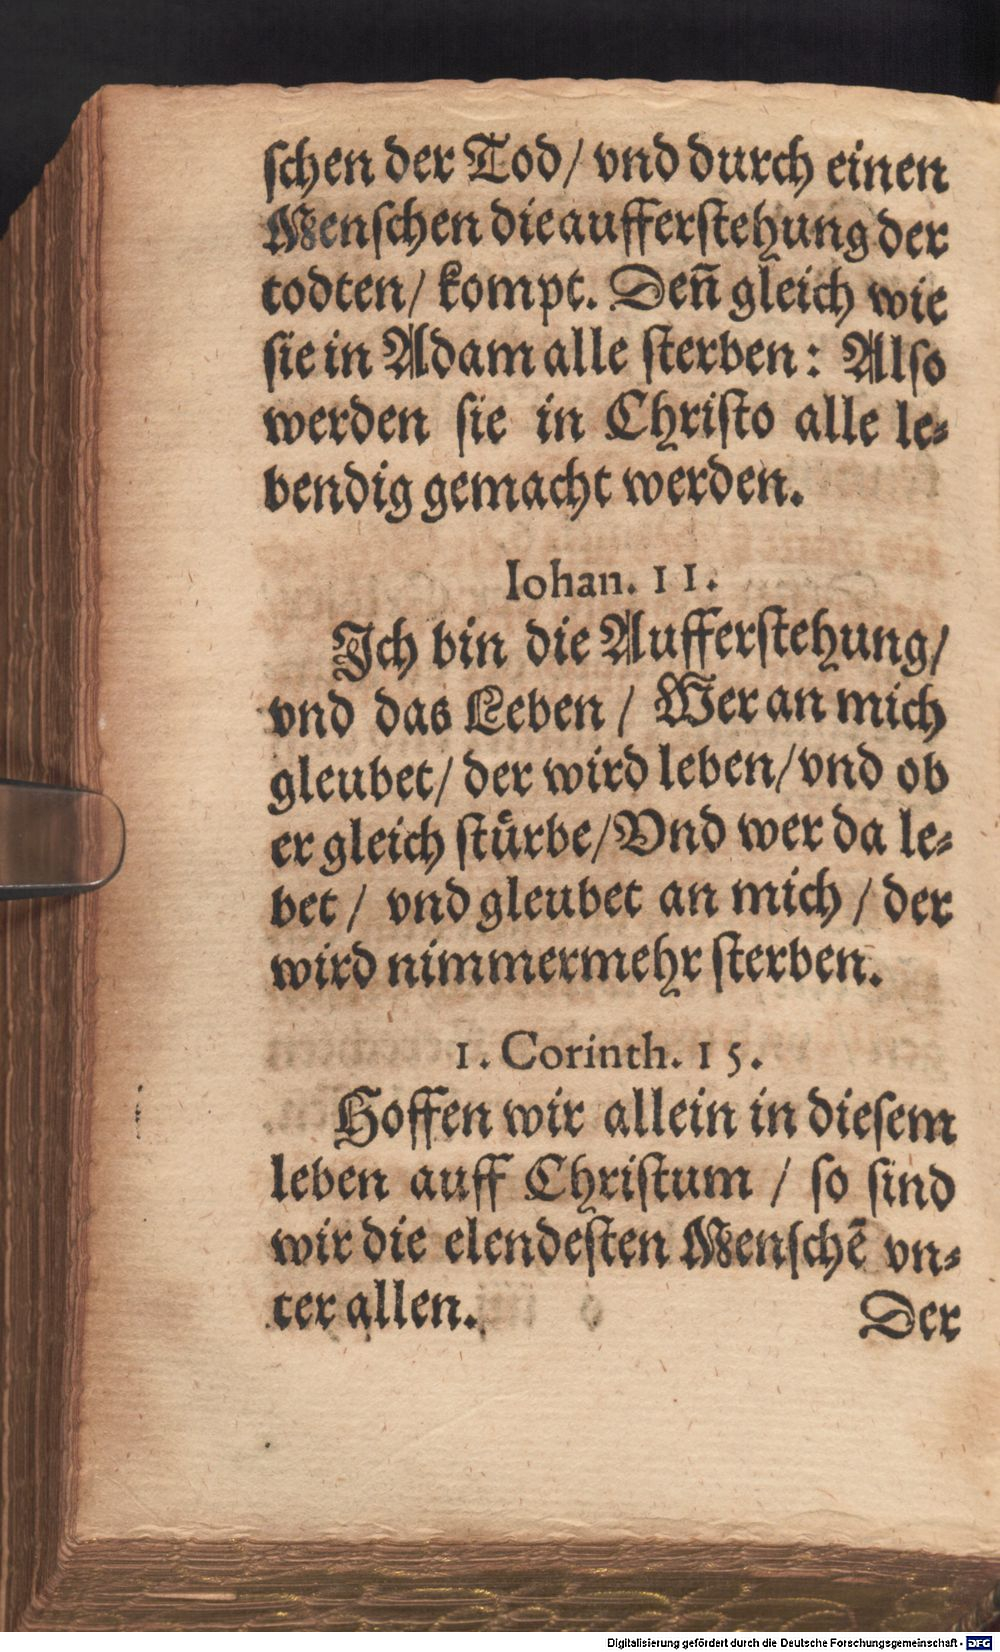 schen der Tod/ vnd durch einen
Menschen die aufferstehung der
todten/ kompt. Deñ gleich wie
sie in Adam alle sterben: Also
werden sie in Christo alle le-
bendig gemacht werden.
Iohan. 11.
Ich bin die Aufferstehung/
vnd das Leben / Wer an mich
gleubet/ der wird leben/vnd ob
er gleich stuͤrbe/Vnd wer da le-
bet / vnd gleubet an mich / der
wird nimmermehr sterben.
1. Corinth. 15.
Hoffen wir allein in diesem
leben auff Christum / so sind
wir die elendesten Menschẽ vn-
ter allen.
Der
Digitalisierung gefördert durch die Deutsche Forschungsgemeinschaft - DFG